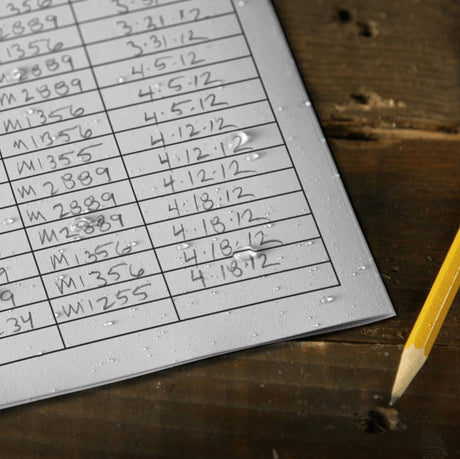 356
1356 3·31·12
M2889 3·31·12
M2889 4·5·12
M1356 4·5·12
M1356 4·5·12
M1355 4·12·12
M2889 4·12·12
M2889 4·12·12
M2889 4·18·12
M1356 4·18·12
9 M1356 4·18·12
34 M1255 4·18·12